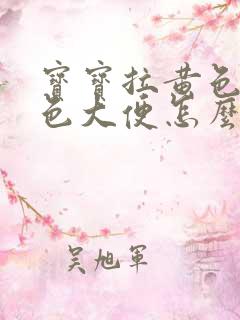 寶寶拉黃色
色大便怎麼
吴旭軍